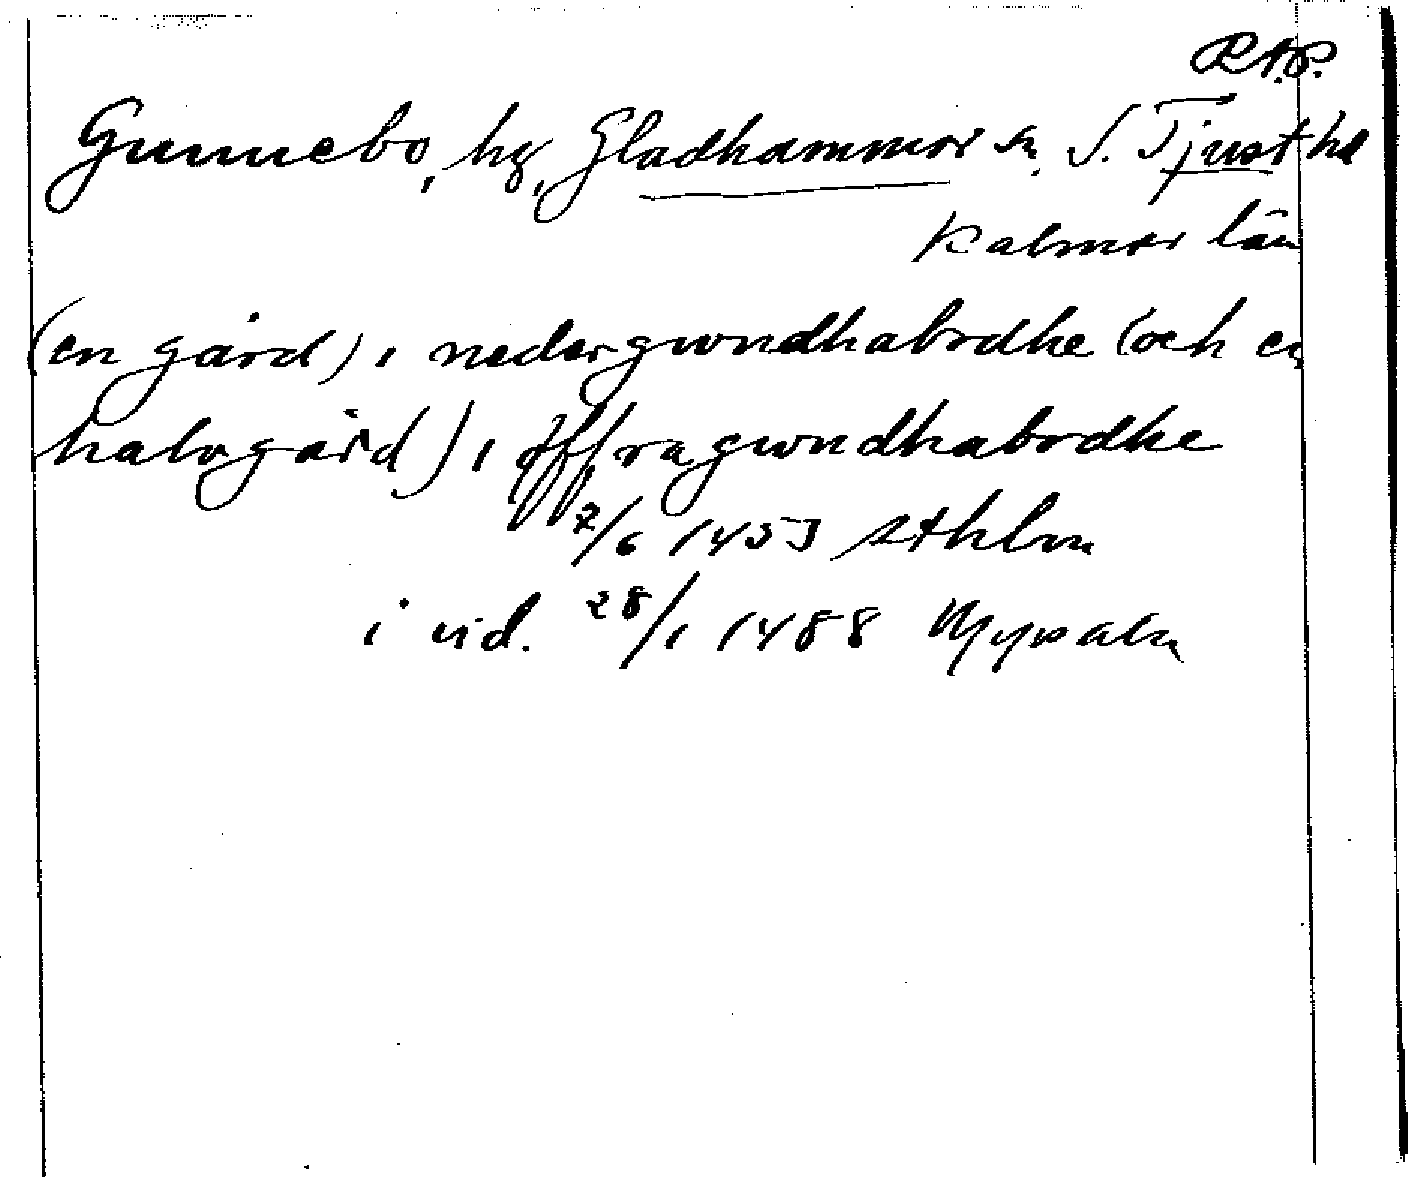 R.A.P.
Gunnebo, hg, Gladhammar sn, S. Tjust hd
Kalmar län
(en gård) i nedergwndhabodhe (och en
halvgård) i øffragwndhabodhe
2/6 1453 Sthlm
i vid. 28/1 1488 Uppsala